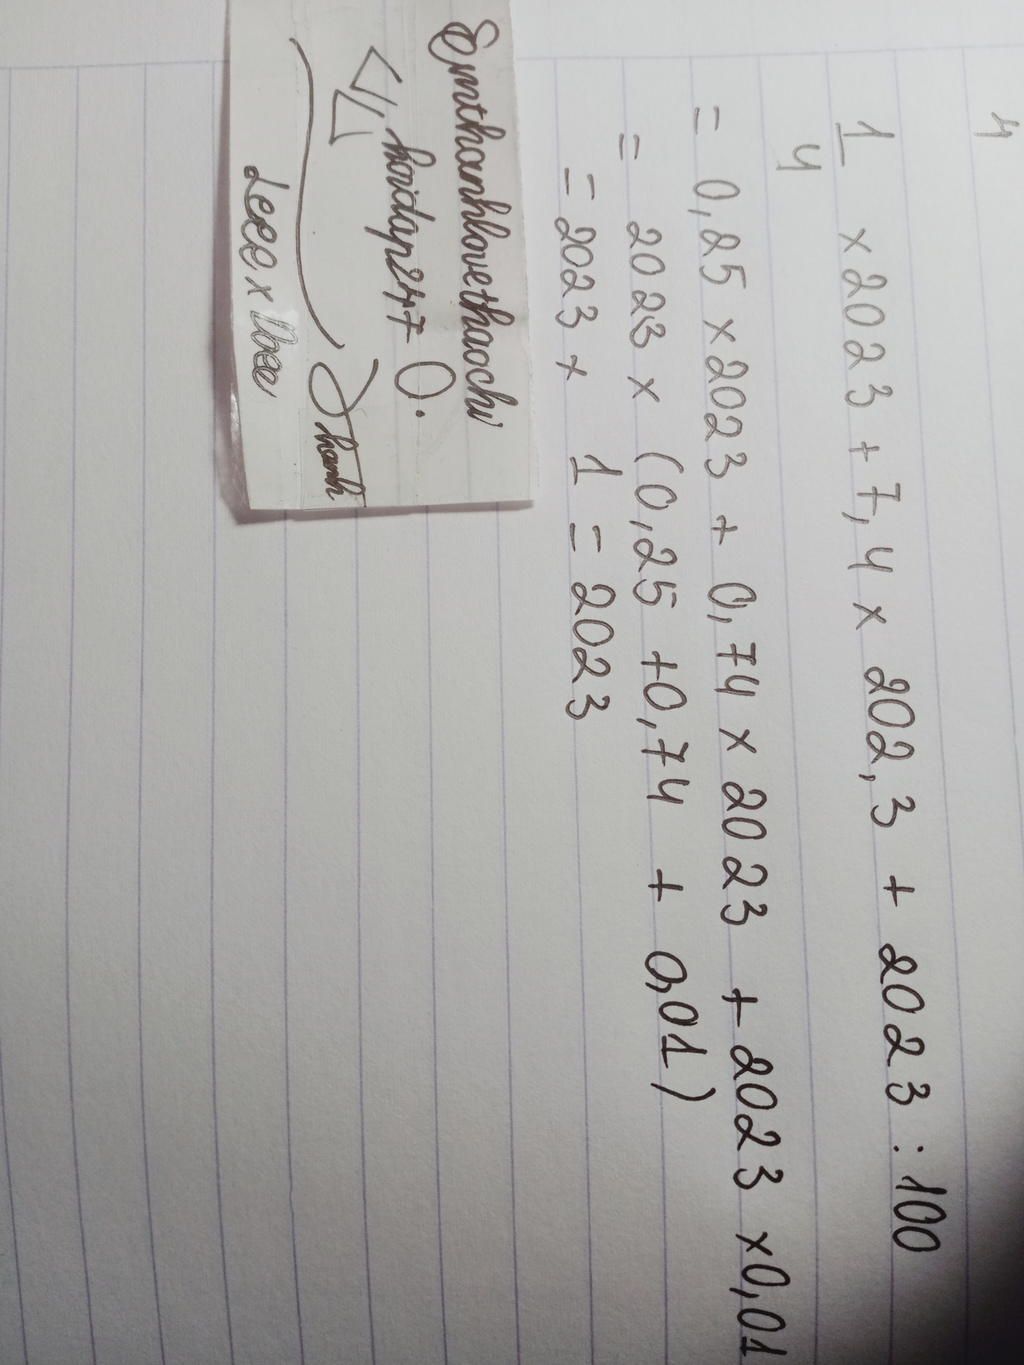 4
1/4 × 2023 + 7,4 × 202,3 + 2023 : 100
= 0,25 × 2023 + 0,74 × 2023 + 2023 × 0,01
= 2023 × (0,25 + 0,74 + 0,01)
= 2023 × 1 = 2023
Emthanhlovethaochi
hoidap247
Thanh